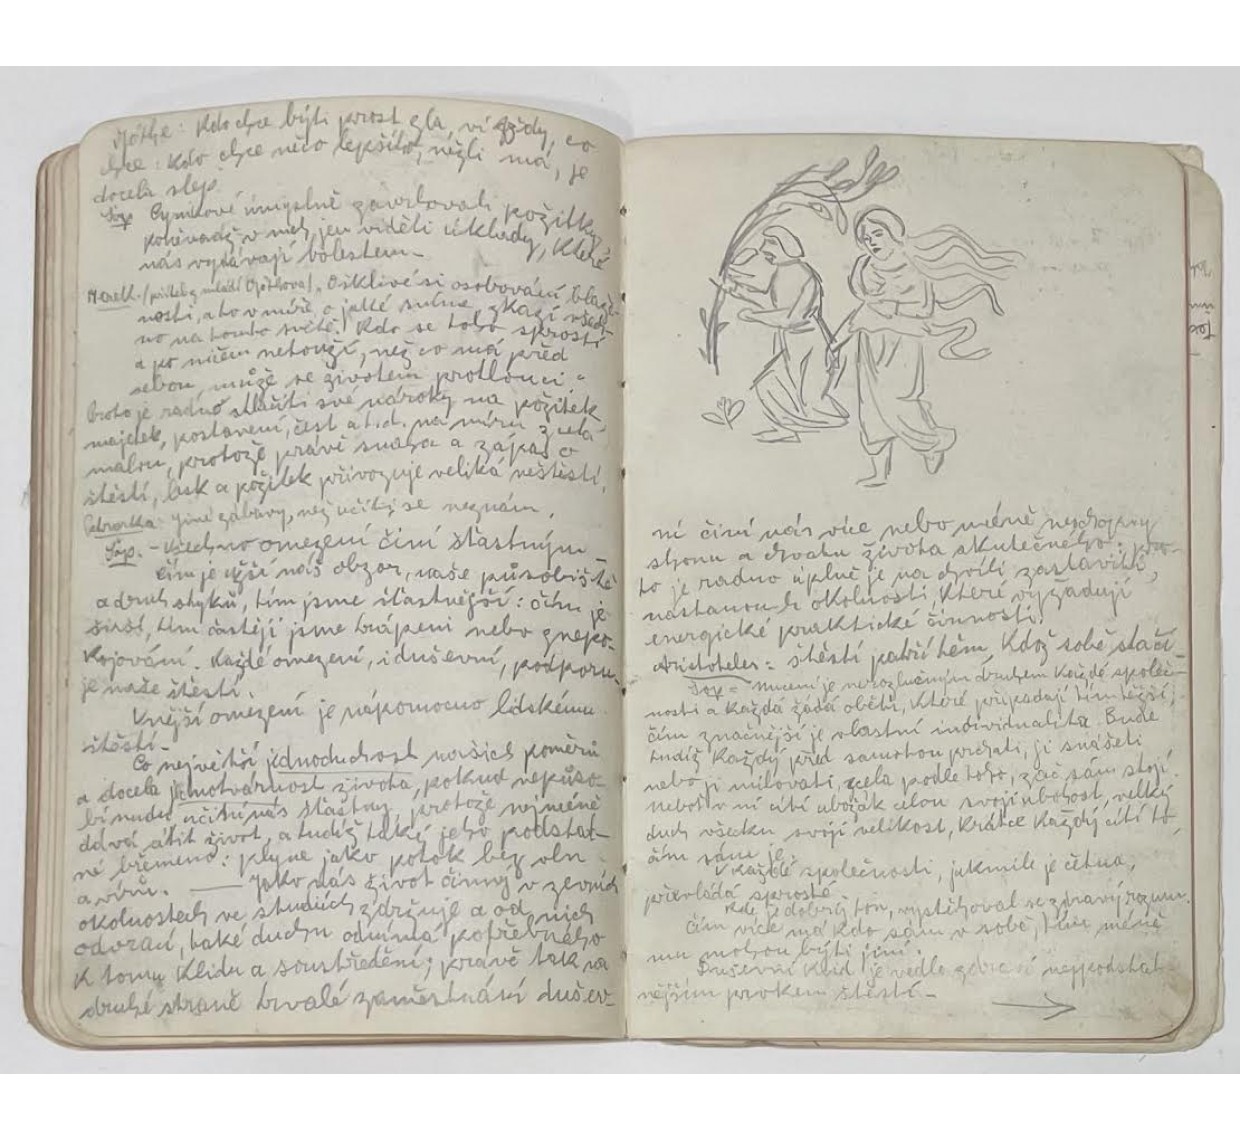 Göthe: Kdo chce býti prost zla, ví vždy, co
chce: Kdo chce něco lepšího, nežli má, je
docela slep.
Šop Cynikové úmyslně zavrhovali požitky,
poněvadž v nich jen viděli úklady, které
nás vydávají bolestem.
Merck. /přítel z mládí Göthova/. Ošklivé si osobování blaže-
nosti, a to v míře, o jaké sníme zkazí všech-
no na tomto světě. Kdo se toho sprostí
a po ničem netouží, než co má před
sebou, může se životem protlouci."
Proto je radno stlačiti své nároky na požitek,
majetek, postavení, čest a t.d. na míru zcela
malou, protože právě snaha a zápas o
štěstí, lesk a požitek přivozuje veliká neštěstí.
Petrarka: jiné zábavy, než učiti se neznám.
Šop. - Všechno omezení činí šťastným -
čím je užší náš obzor, naše působiště
a druh styků, tím jsme šťastnější: čím je
širší, tím častěji jsme trápeni nebo znepo-
kojováni. Každé omezení, i duševní, podporu-
je naše štěstí.
Vnější omezení je nápomocno lidskému
štěstí. -
Co největší jednoduchost našich poměrů
a docela jednotvárnost života, pokud nepůso-
bí nudu, učiní nás šťastny, protože nejméně
dává cítit život, a tudíž také jeho podstat-
né břemeno: plyne jako potok bez vln
a vírů. — Jako nás život činný v zevních
okolnostech ve studiích zdržuje a od nich
odvrací, také duchu odnímá potřebného
k tomu klidu a soustředění; právě tak na
druhé straně trvalé zaměstnání dušev-
ní činí nás více nebo méně neschopny
shonu a chvatu života skutečného: pro-
to je radno úplně je na chvíli zastaviti,
nastanou-li okolnosti, které vyžadují
energické praktické činnosti.
Aristoteles: štěstí patří těm, kdož sobě stačí. -
Šop = nucení je nerozlučným druhem každé společ-
nosti a každá žádá oběti, které připadají tím těžší,
čím značnější je vlastní individualita. Bude
tudíž každý před samotou prchati, ji snášeti
nebo ji milovati, zcela podle toho, zač sám stojí.
neboť v ní cítí ubožák celou svoji ubohost, velký
duch všecku svoji velikost, krátce každý cítí to,
čím sám je.
V každé společnosti, jakmile je četná,
převládá sprosté
Kde je dobrý tón, vystěhoval se zdravý rozum.
čím více má kdo sám v sobě, tím méně
mu mohou býti jiní.
Duševní klid je vedle zdraví nejpodstat-
nějším prvkem štěstí. -